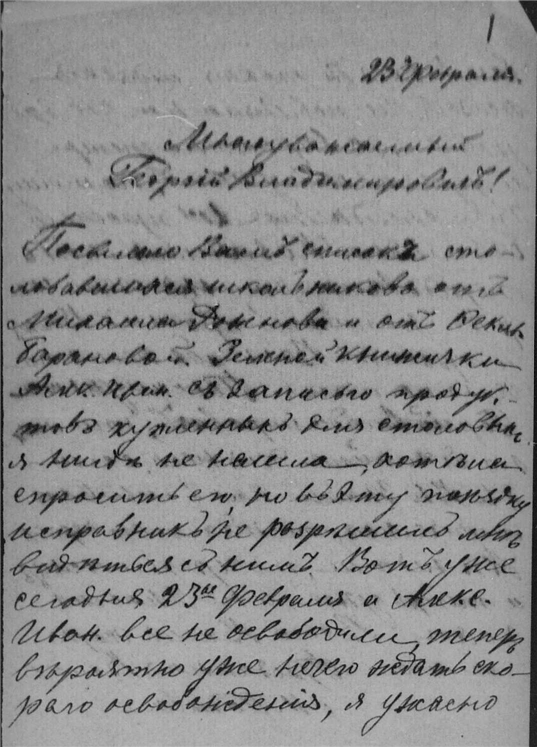 1
23 февраля.
Многоуважаемый
Георгій Владимировичъ!
Посылаю Вамъ списокъ сто-
ловавшихся школьниковъ отъ
Михаила Дом нова и отъ Феклы
Барановой. Земной книжечки
Алек. Иван. съ записью продук-
товъ купленныхъ для столовыхъ
я нигдѣ не нашла, хотѣла
спросить его, но въ эту поѣздку
исправникъ не разрѣшилъ мнѣ
видѣться съ нимъ. Вотъ уже
сегодня 23ое Февраля а Алекс.
Иван. все не освободили, теперь
вѣроятно уже нечего ждать ско-
раго освобожденія, я ужасно